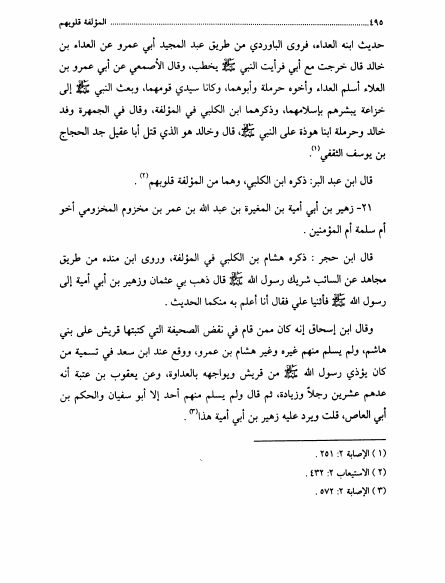 ٤٩٥ المؤلفة قلوبهم
حديث ابنه العداء، فروى الباوردي من طريق عبد المجيد أبي عمرو عن العداء بن
خالد قال خرجت مع أبي فرأيت النبي ﷺ يخطب، وقال الأصمعي عن أبي عمرو بن
العلاء أسلم العداء وأخوه حرملة وأبوهما، وكانا سيدي قومهما، وبعث النبي ﷺ إلى
خزاعة يبشرهم بإسلامهما، وذكرهما ابن الكلبي في المؤلفة، وقال في الجمهرة وفد
خالد وحرملة ابنا هوذة على النبي ﷺ، قال وخالد هو الذي قتل أبا عقيل جد الحجاج
بن يوسف الثقفي(١).
قال ابن عبد البر: ذكره ابن الكلبي، وهما من المؤلفة قلوبهم(٢) .
٢١- زهير بن أبي أمية بن المغيرة بن عبد الله بن عمر بن مخزوم المخزومي أخو
أم سلمة أم المؤمنين .
قال ابن حجر : ذكره هشام بن الكلبي في المؤلفة، وروى ابن منده من طريق
مجاهد عن السائب شريك رسول الله ﷺ قال ذهب بي عثمان وزهير بن أبي أمية إلى
رسول الله ﷺ فأثنيا علي فقال أنا أعلم به منكما الحديث .
وقال ابن إسحاق إنه كان ممن قام في نقض الصحيفة التي كتبتها قريش على بني
هاشم، ولم يسلم منهم غيره وغير هشام بن عمرو، ووقع عند ابن سعد في تسمية من
كان يؤذي رسول الله ﷺ من قريش ويواجهه بالعداوة، وعن يعقوب بن عتبة أنه
عدهم عشرين رجلاً وزيادة، ثم قال ولم يسلم منهم أحد إلا أبو سفيان والحكم بن
أبي العاص، قلت ويرد عليه زهير بن أبي أمية هذا(٣).
(١) الإصابة ٢: ٢٥١ .
(٢) الاستيعاب ٢: ٤٣٢ .
(٣) الإصابة ٢: ٥٧٢ .